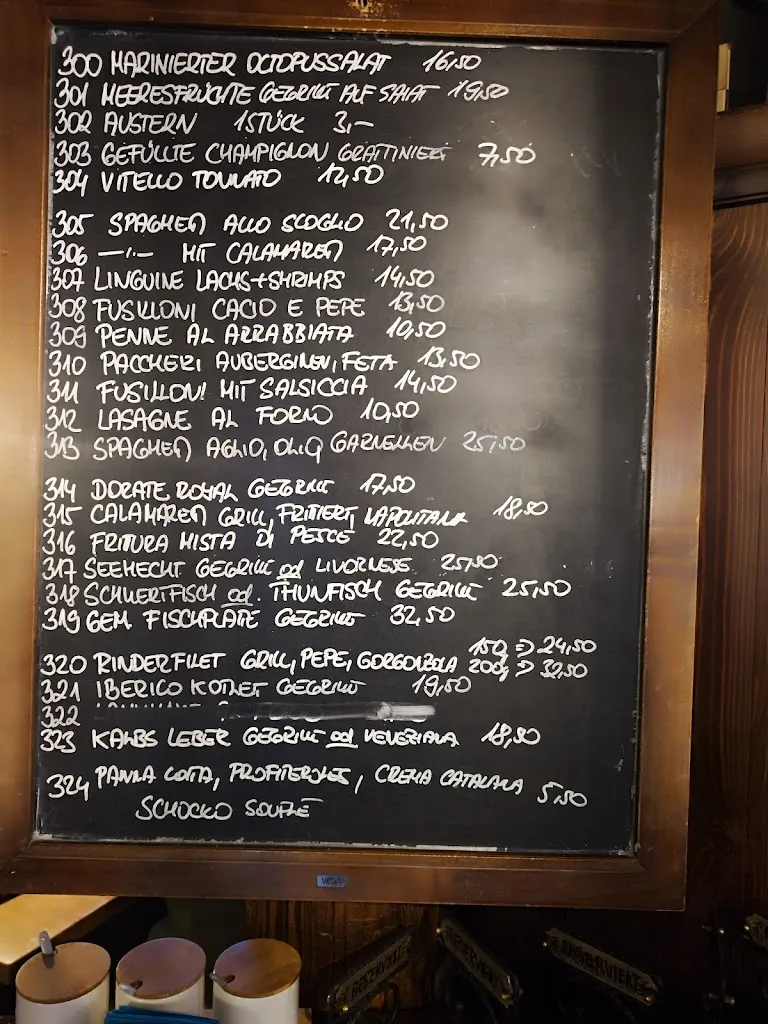 300 MARINIERTER OCTOPUSSALAT 16,50
301 MEERESFRÜCHTE GEGRILLT AUF SALAT 19,50
302 AUSTERN 1STÜCK 3,-
303 GEFÜLLTE CHAMPIGNON GRATTINIERT 7,50
304 VITELLO TONNATO 12,50
305 SPAGHETTI ALLO SCOGLIO 21,50
306 —·/·— MIT CALAMARETTI 17,50
307 LINGUINE LACHS+SHRIMPS 14,50
308 FUSILLONI CACIO E PEPE 13,50
309 PENNE AL ARRABBIATA 10,50
310 PACCHERI AUBERGINEN, FETA 13,50
311 FUSILLONI MIT SALSICCIA 14,50
312 LASAGNE AL FORNO 10,50
313 SPAGHETTI AGLIO, OLIO GARNELEN 25,50
314 DORATE ROYAL GEGRILLT 17,50
315 CALAMARETTI GRILL, FRITIERT, NAPOLITANA 18,50
316 FRITURA MISTA DI PESCE 22,50
317 SEEHECHT GEGRILLT od LIVORNESE 25,50
318 SCHWERTFISCH od. THUNFISCH GEGRILLT 25,50
319 GEM FISCHPLATE GEGRILLT 32,50
320 RINDERFILET GRILL, PEPE, GORGONZOLA 150g => 24,50
200g => 32,50
321 IBERICO KOTLET GEGRILLT 19,50
322
323 KALBS LEBER GEGRILLT od VENEZIANA 18,50
324 PANNA COTTA, PROFITEROLES, CREMA CATALANA 5,50
SCHOCKO SOUFLÉ
RESERVIERT
RESERVIERT
RESERVIERT